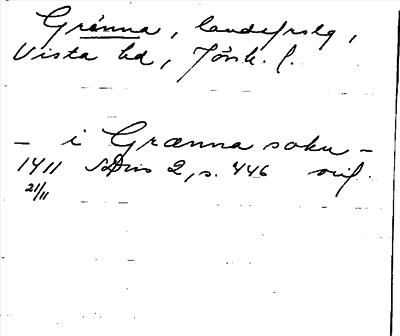 Gränna, landsfrslg,
Vista hd, Jönk. l.
– i Grænna sokn –
1411 SDns 2, s. 446 orig.
21/11